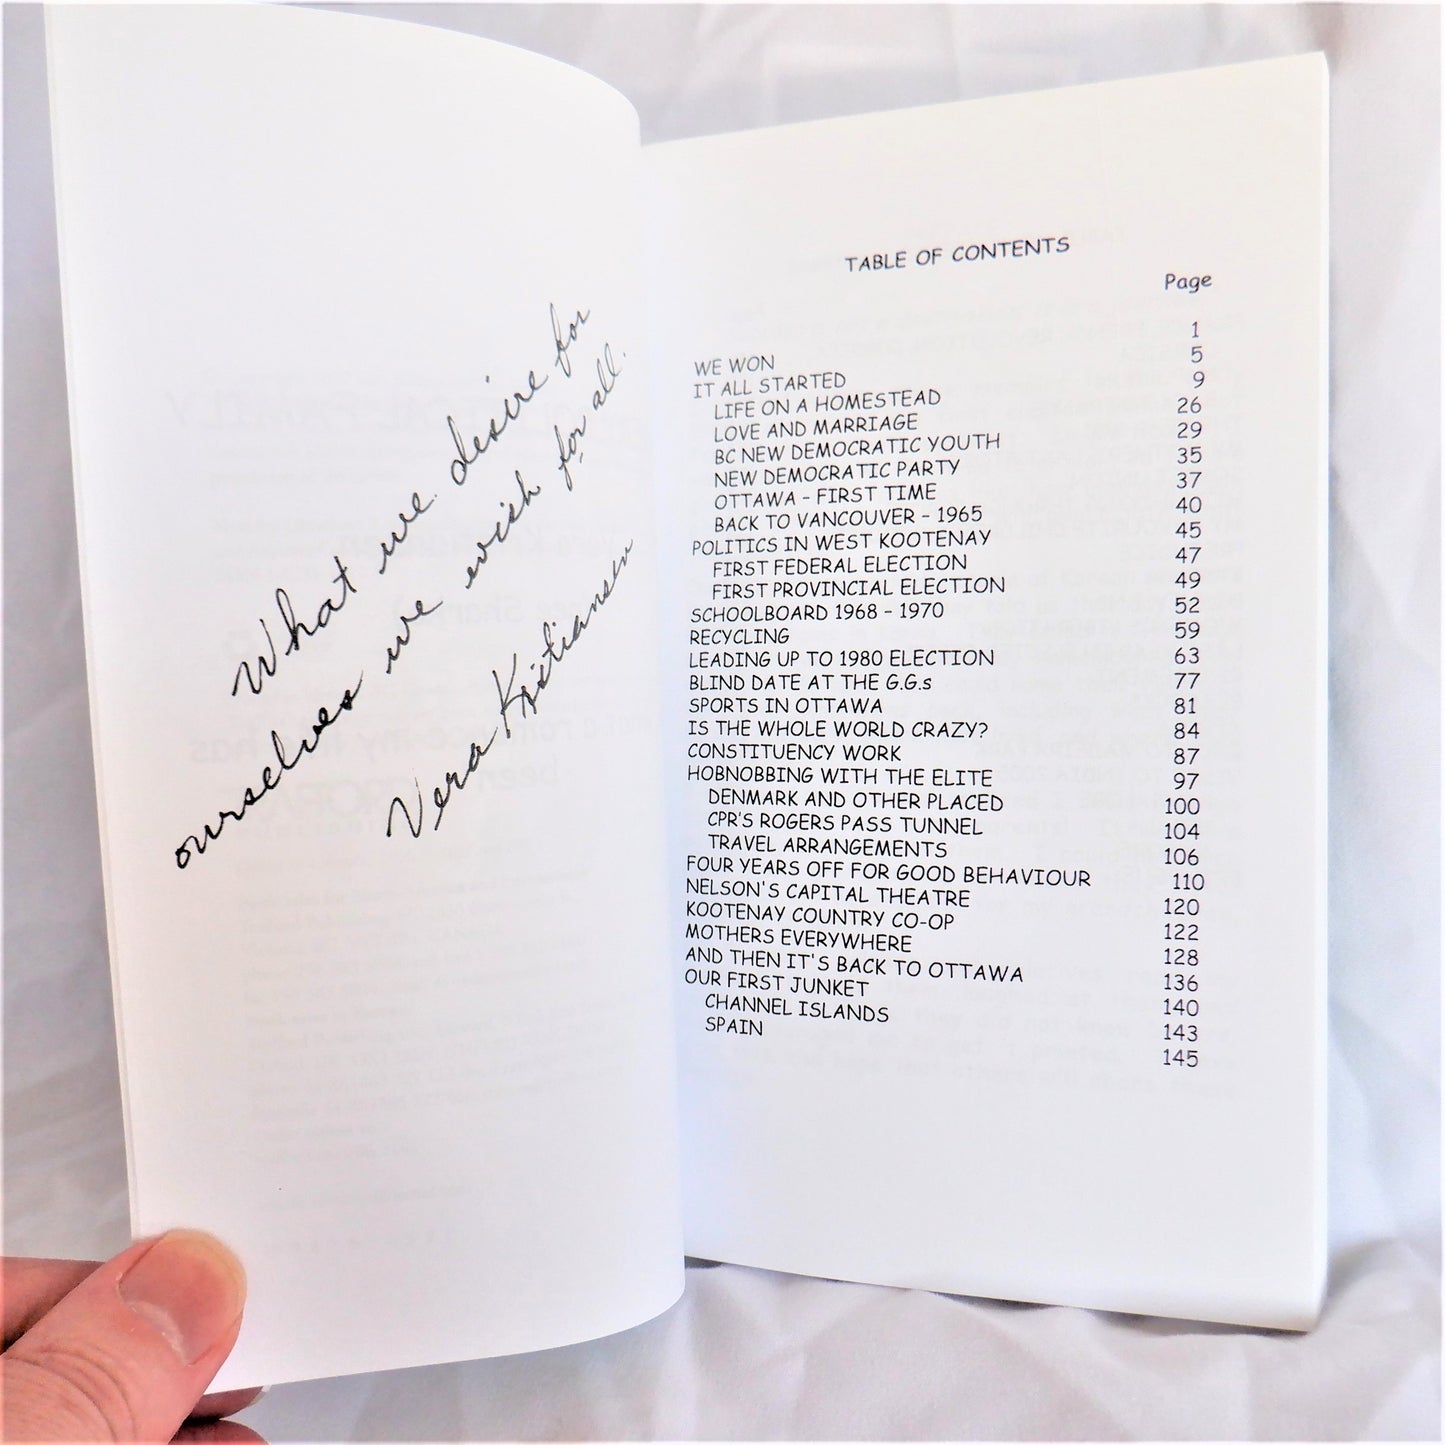 What we desire for
ourselves we wish for all.
Vera Kristiansen
TABLE OF CONTENTS
Page
WE WON 1
IT ALL STARTED 5
LIFE ON A HOMESTEAD 9
LOVE AND MARRIAGE 26
BC NEW DEMOCRATIC YOUTH 29
NEW DEMOCRATIC PARTY 35
OTTAWA - FIRST TIME 37
BACK TO VANCOUVER - 1965 40
POLITICS IN WEST KOOTENAY 45
FIRST FEDERAL ELECTION 47
FIRST PROVINCIAL ELECTION 49
SCHOOLBOARD 1968 - 1970 52
RECYCLING 59
LEADING UP TO 1980 ELECTION 63
BLIND DATE AT THE G.G.s 77
SPORTS IN OTTAWA 81
IS THE WHOLE WORLD CRAZY? 84
CONSTITUENCY WORK 87
HOBNOBBING WITH THE ELITE 97
DENMARK AND OTHER PLACED 100
CPR'S ROGERS PASS TUNNEL 104
TRAVEL ARRANGEMENTS 106
FOUR YEARS OFF FOR GOOD BEHAVIOUR 110
NELSON'S CAPITAL THEATRE 120
KOOTENAY COUNTRY CO-OP 122
MOTHERS EVERYWHERE 128
AND THEN IT'S BACK TO OTTAWA 136
OUR FIRST JUNKET 140
CHANNEL ISLANDS 143
SPAIN 145